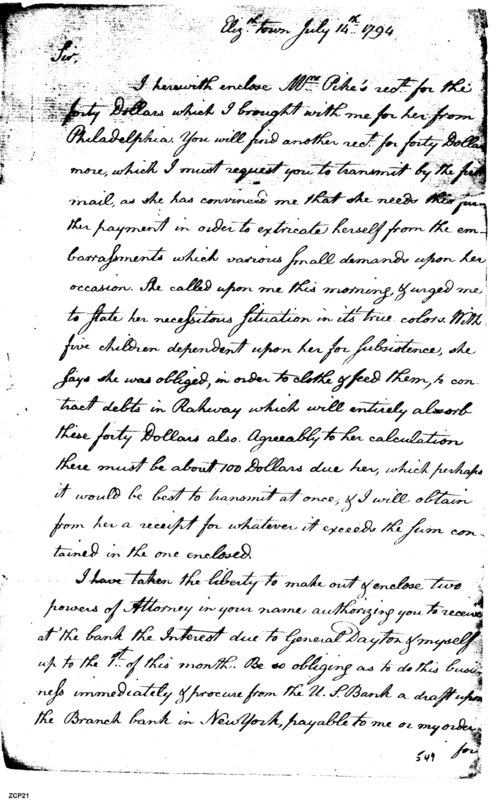 Eliz.th town July 14th. 1794
Sir,
I herewith enclose Mrs. Pike's rect. for the
forty Dollars which I brought with me for her from
Philadelphia. You will find another rect. for forty Dollars
more, which I must request you to transmit by the first
mail, as she has convinced me that she needs this fur-
ther payment in order to extricate herself from the em-
barrassments which various small demands upon her
occasion. She called upon me this morning, & urged me
to state her necessitous situation in it's true colors. With
five children dependent upon her for subsistence, she
says she was obliged, in order to clothe & feed them, to con-
tract debts in Rahway which will entirely absorb
these forty Dollars also. Agreeably to her calculation
there must be about 100 Dollars due her, which perhaps
it would be best to transmit at once, & I will obtain
from her a receipt for whatever it exceeds the sum con-
tained in the one enclosed.
I have taken the liberty to make out & enclose two
powers of Attorney in your name authorizing you to receive
at the bank the Interest due to General Dayton & myself
up to the 1st. of this month. Be so obliging as to do this busi-
ness immediately & procure from the U. S Bank a draft upon
the Branch bank in New York, payable to me or my order
for
549
ZCP21